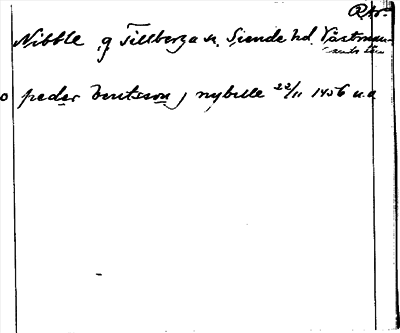 Nibble, g Tillberga sn. Siende hd. Västman-
o peder bentsson j nybille 22/11 1456 u.a